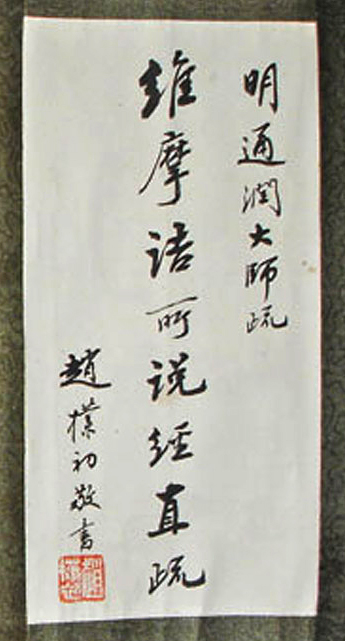 明通润大師疏
維摩诘所说經直疏
趙樸初敬書